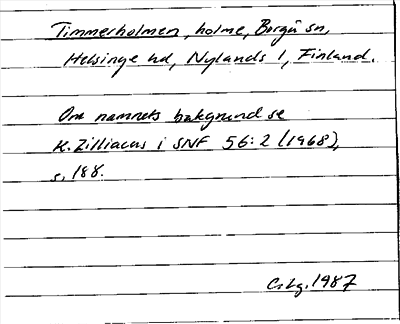 Timmerholmen, holme, Borgå sn,
Helsinge hd, Nylands l, Finland.
Om namnets bakgrund se
K. Zilliacus i SNF 56:2 (1968),
s. 188.
1987